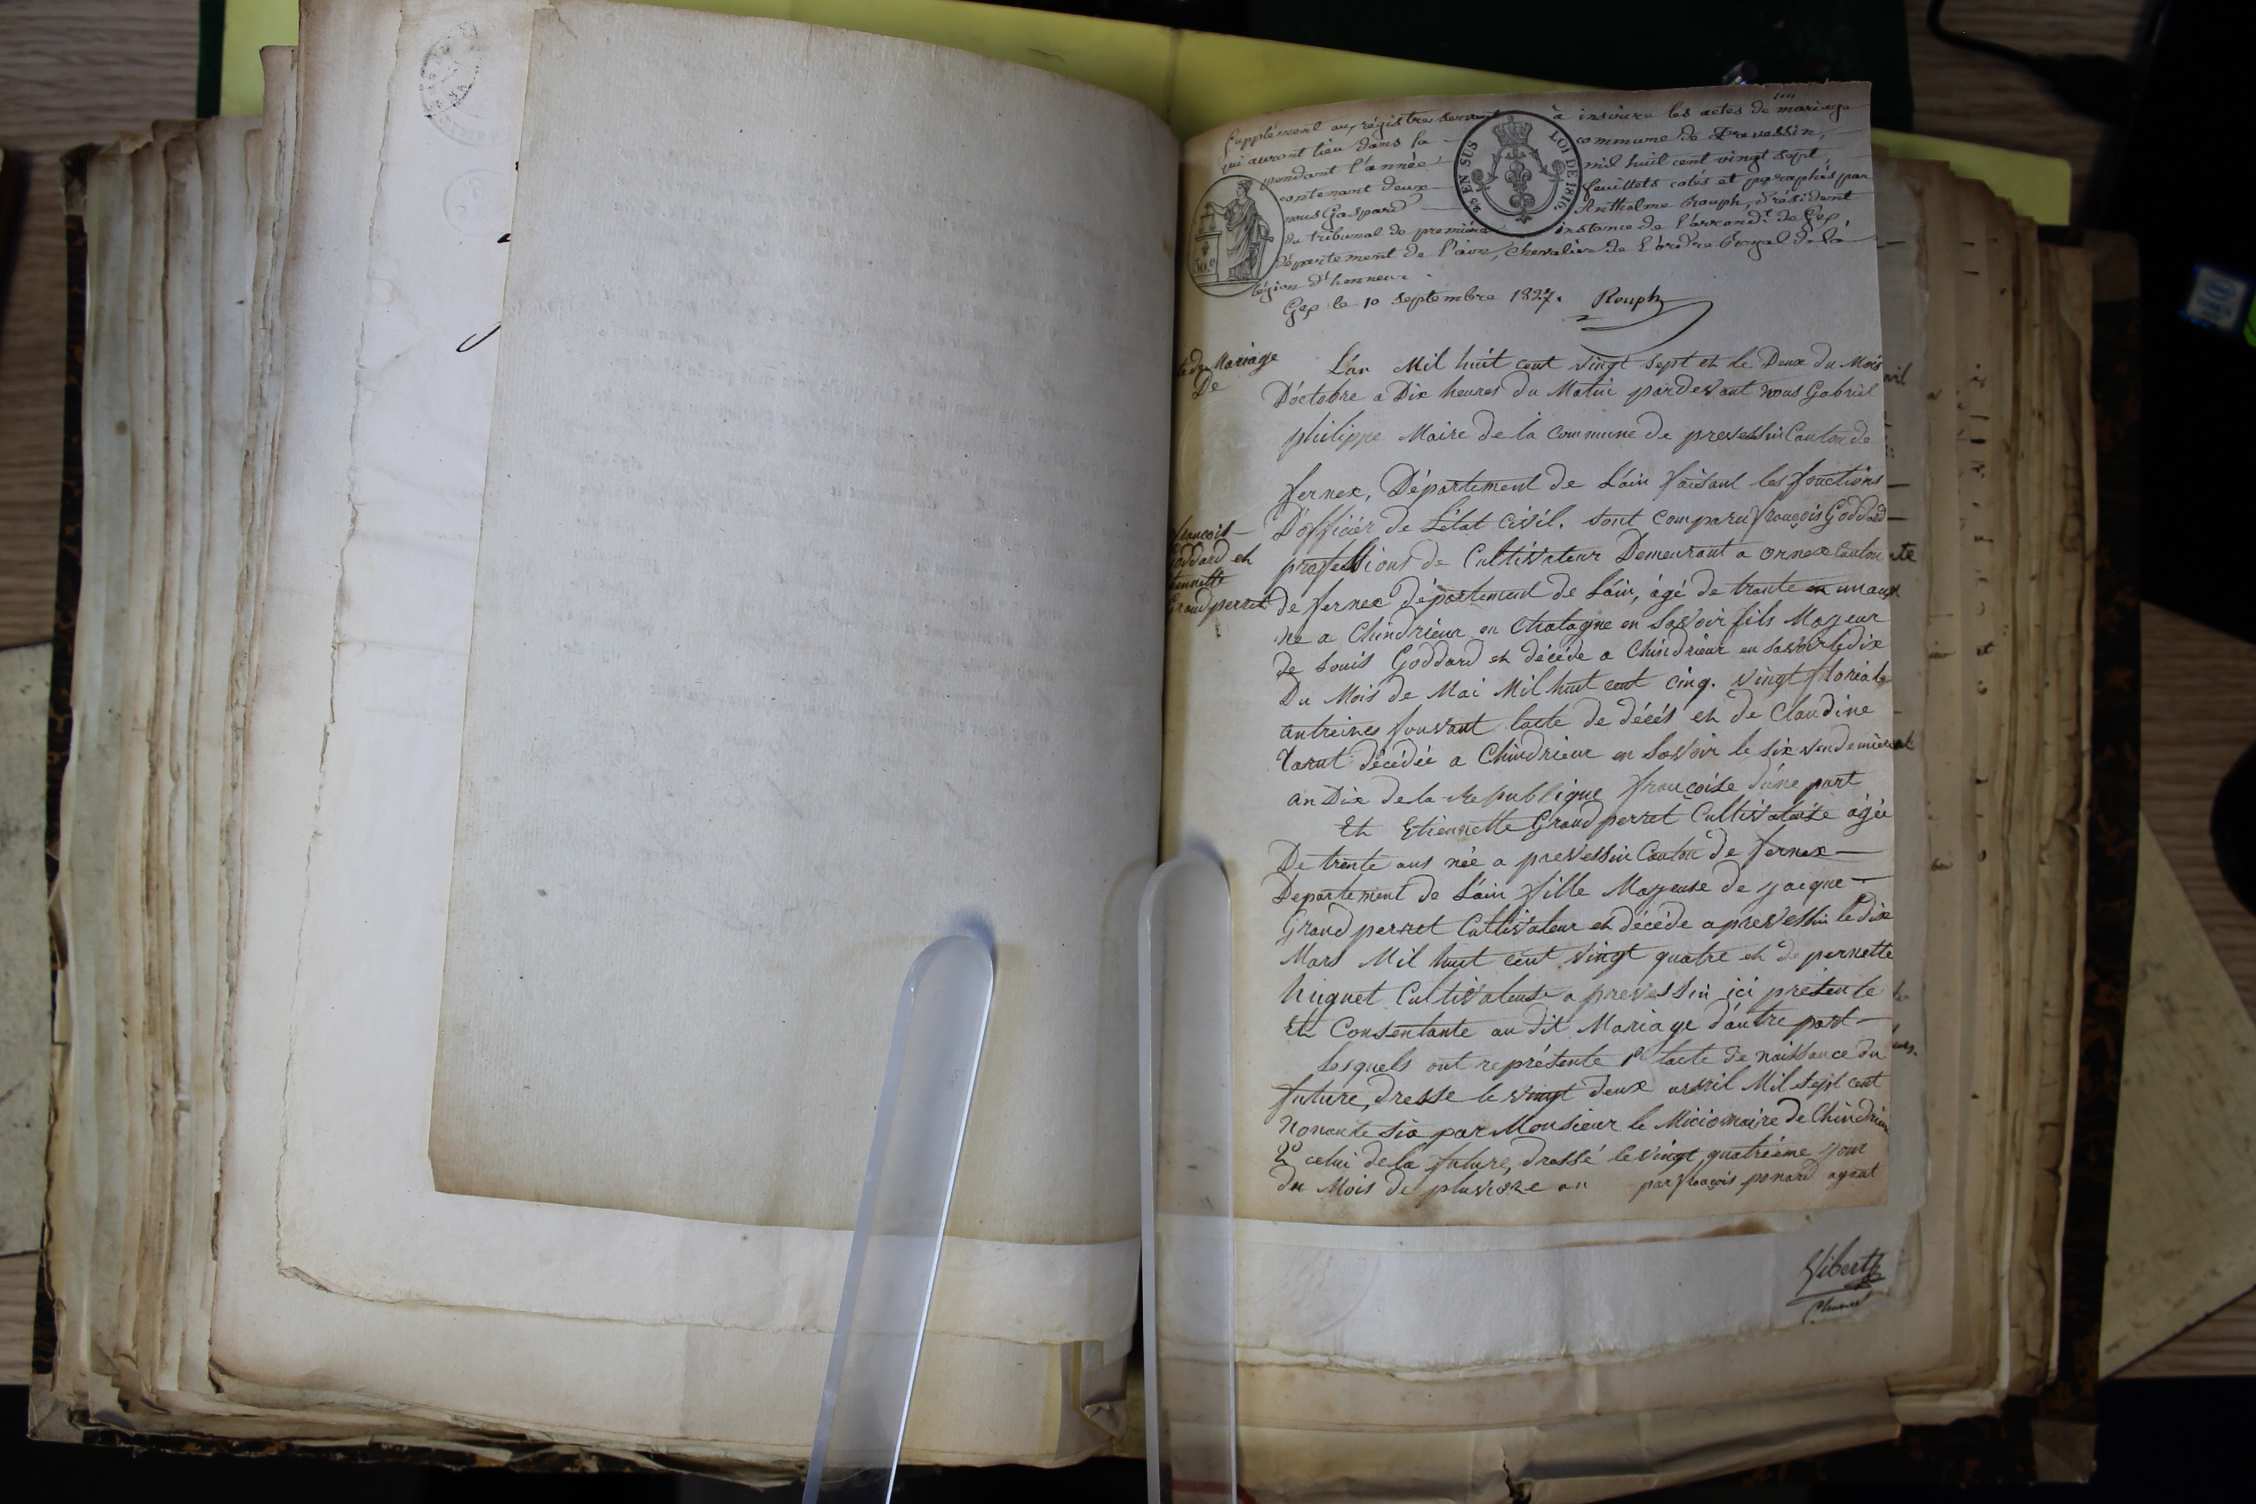 Supplément au régistre servant à inscrire les actes de mariage
qui auront lieu dans la commune de Prevessin,
pendant l'année mil huit cent vingt sept,
contenant deux feuillets cotés et paraphés par
nous Gaspard Anthelme Rouph, Président
du tribunal de première instance de l'arrond.t de Gex,
département de l'ain, Chevalier de l'ordre Royal de la
légion d'honneur.
Gex le 10 Septembre 1827. Rouph
EN SUS
LOI DE 1816
50.c
Mariage
De
François
Goddard et
Grandperret
L'an Mil huit cent vingt sept et le Deux du Mois
D'octobre a Dix heures du Matin pardevant nous Gabriel
philippe Maire de la Commune de prevessin Canton de
fernex, Département de L'ain faisant les fonctions
D'officier de L'état Civil. sont comparu françois Goddard
professions de Cultivateur Demeurant a ornex Canton
de fernex département de L'ain, âgé de trante en un aux
ne a Chindrieux en Chatagne en Savoir fils Mayeur
de Louis Goddard et décéde a Chindrieux en Savoir le dix
Du Mois de Mai Mil huit cent cinq. vingt florial
antreines suivant lacte de décés et de Claudine
décédée a Chindrieux en Savoir le six vendemiere
an Dix de la Republique françoise d'une part
Et Etiennette Grandperret Cultivateuse âgée
De trente ans née a prevessin Canton de fernex
Departement de L'ain fille Mayeuse de jacque
Grandperret Cultivateur et décéde a prevessin le dix
Mars Mil huit cent vingt quatre et de pernette
huguet Cultivateuse a prevessin ici présente
Et Consentante au dit Mariage d'autre part
Lesquels ont représente 1º lacte de naissance du
future, dresse le vingt deux avril Mil sept cent
nonante six par Monsieur le Micionnaire de Chindrieu
2º celui de la future, dressé le vingt quatrième jour
du Mois de pluviose an par françois ponard agent
Vibert